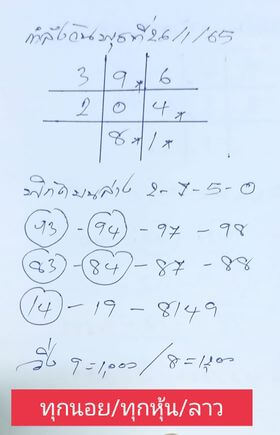 กำลังวันพุธที่26/1/65
3 9* 6
2 0 4*
8* 1*
พิกัดบนล่าง 2-7-5-0
93 - 94 - 97 - 98
83 - 84 - 87 - 88
14 - 19 - 8149
วิ่ง 9=1,000/8=1,200
ทุกนอย/ทุกหุ้น/ลาว